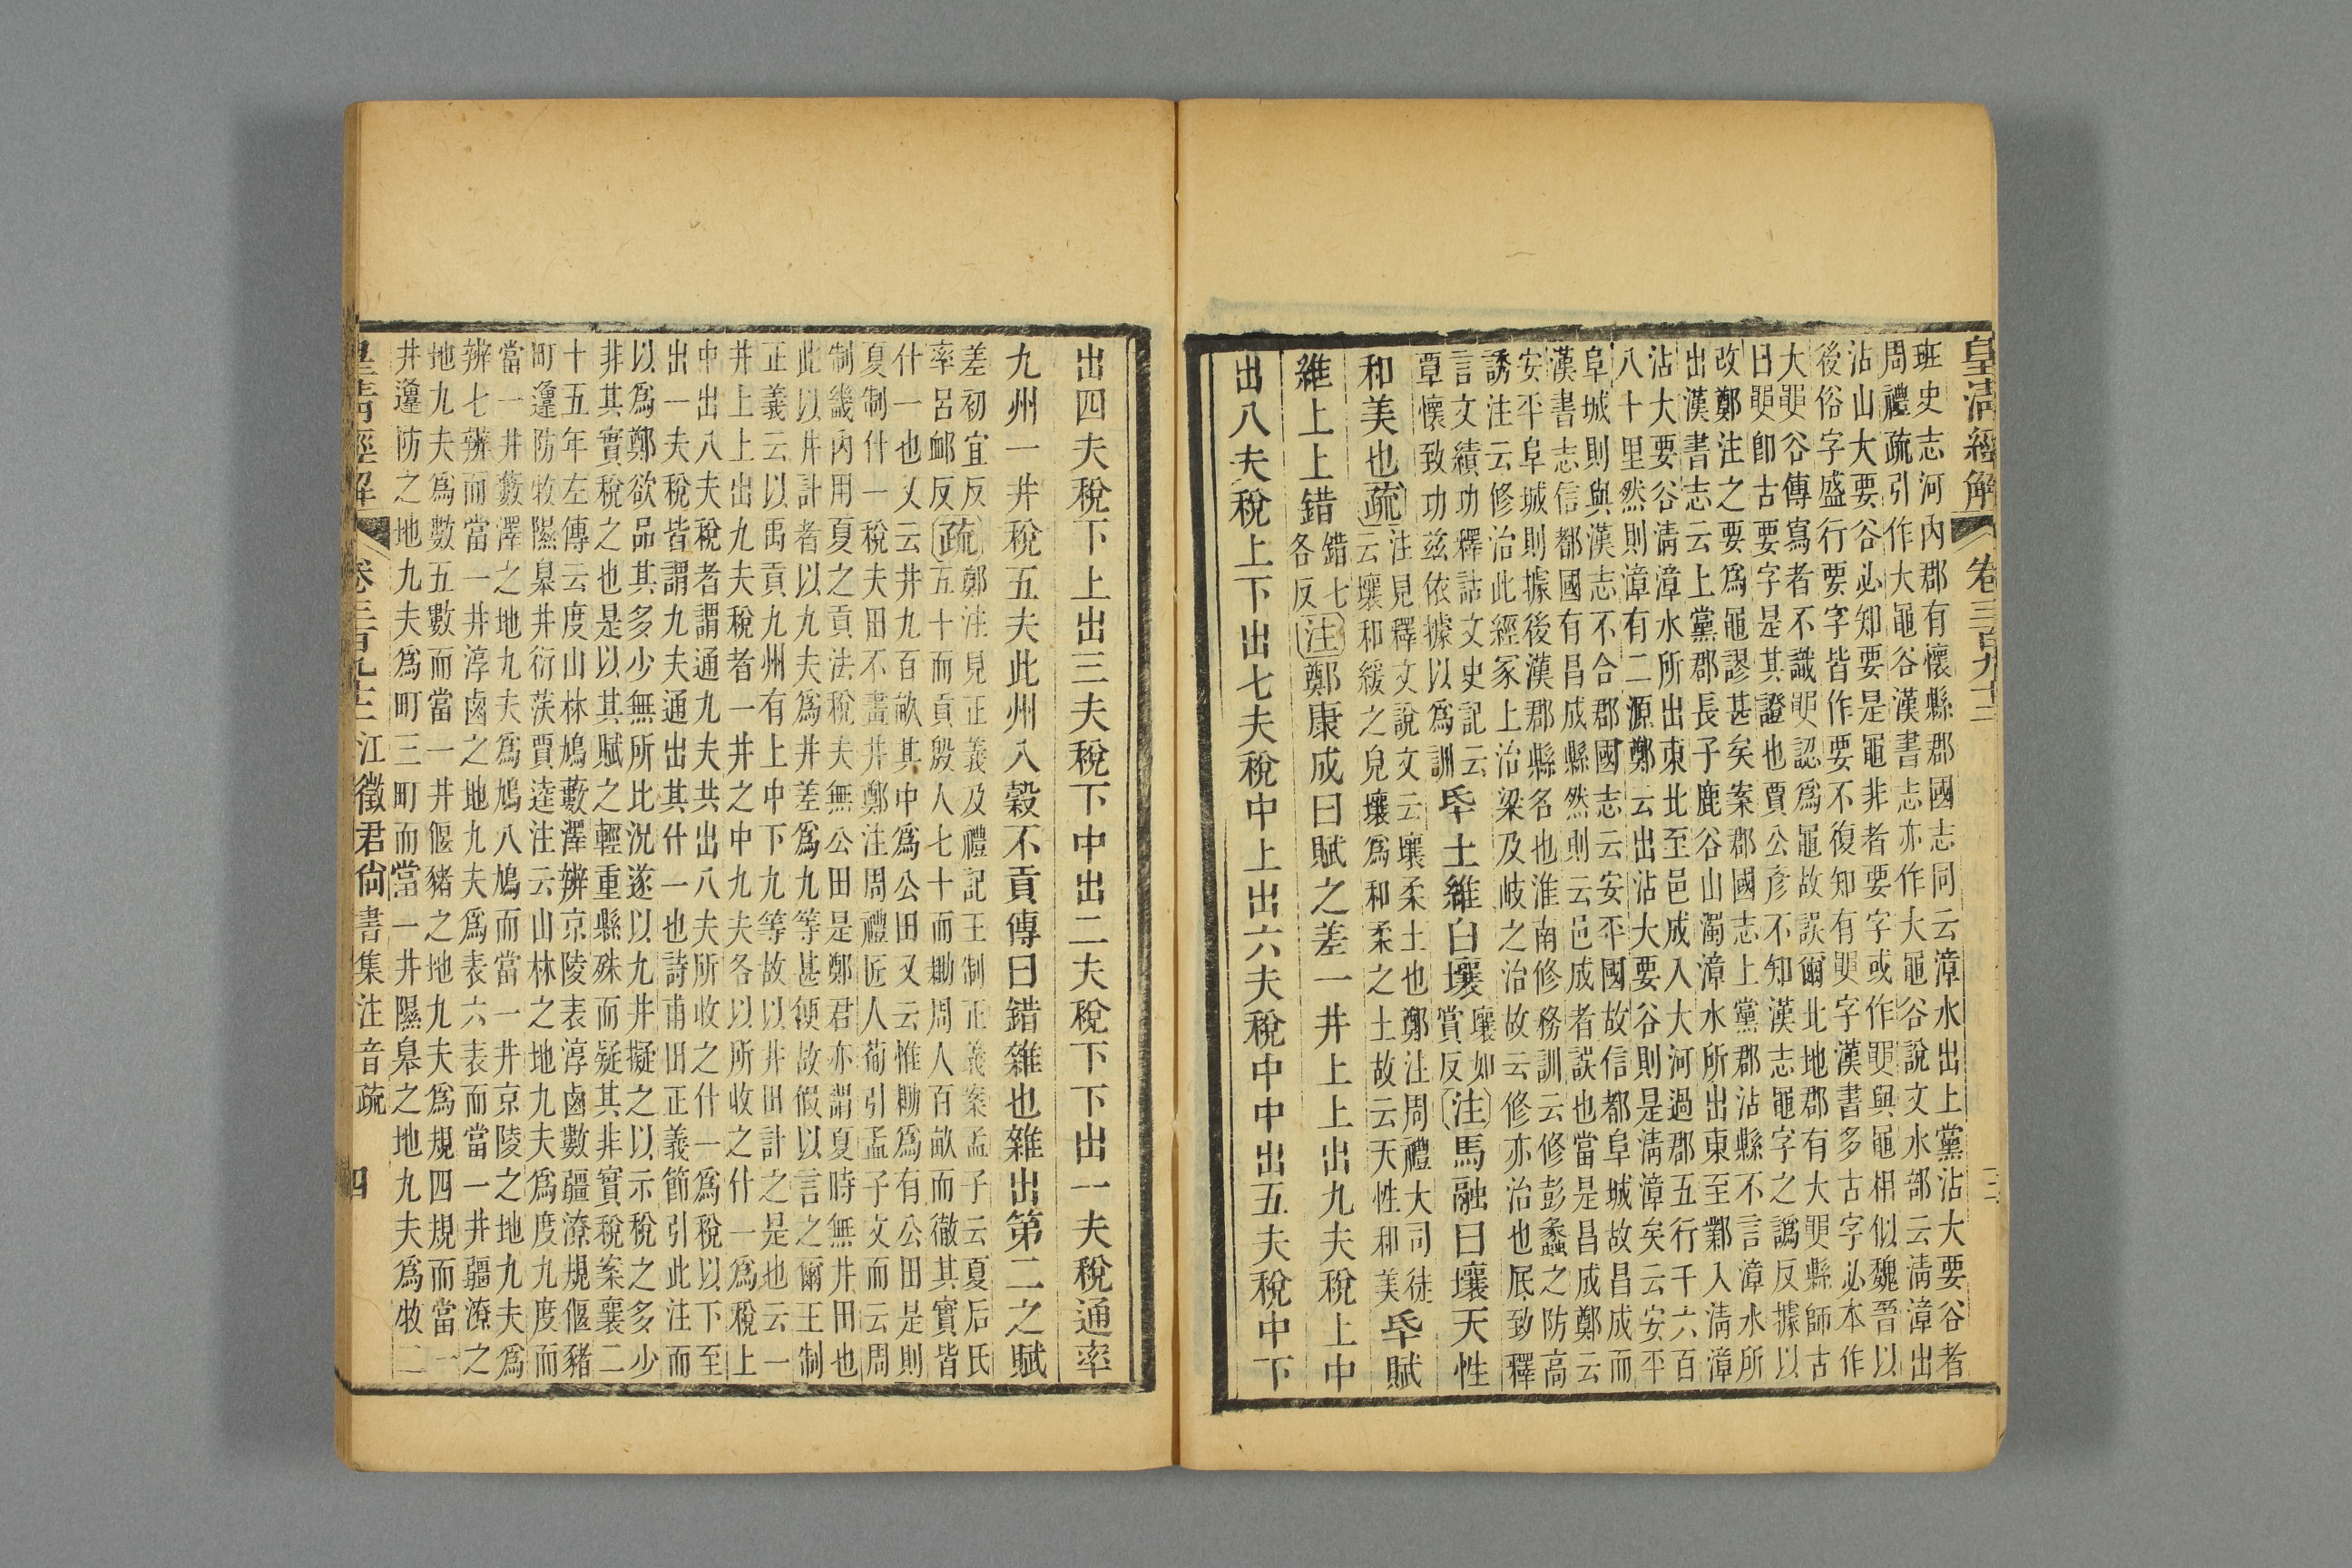 皇清經解 卷三百九十二 三
班史志河內郡有懷縣郡國志同云漳水出上黨沾大要谷者
周禮疏引作大黽谷漢書志亦作大黽谷說文水部云淸漳出
沾山大要谷必知要是黽非者要字或作㚻與黽相似魏晉以
後俗字盛行要字皆作要不復知有㚻字漢書多古字必本作
大㚻谷傳寫者不識㚻認爲黽故誤爾北地郡有大㚻縣師古
曰㚻卽古要字是其證也賈公彥不知漢志黽字之譌反據以
改鄭注之要爲黽謬甚矣案郡國志上黨郡沾縣不言漳水所
出漢書志云上黨郡長子鹿谷山濁漳水所出東至鄴入淸漳
沾大要谷淸漳水所出東北至邑成入大河過郡五行千六百
八十里然則漳有二源鄭云出沾大要谷則是淸漳矣云安平
阜城則與漢志不合郡國志云安平國故信都阜城故昌成而
漢書志信都國有昌成縣然則云邑成者誤也當是昌成鄭云
安平阜城則據後漢郡縣名也淮南修務訓云修彭蠡之防高
誘注云修治此經冢上治梁及岐之治故云修亦治也厎致釋
言文績功釋詁文史記云
覃懷致功兹依據以爲訓
氒土維白壤
壤如
賞反
注馬融曰壤天性
和美也疏
注見釋文說文云壤柔土也鄭注周禮大司徒
云壤和緩之皃壤爲和柔之土故云天性和美
氒賦
維上上錯
錯七
各反
注鄭康成曰賦之差一井上上出九夫稅上中
出八夫稅上下出七夫稅中上出六夫稅中中出五夫稅中下
出四夫稅下上出三夫稅下中出二夫稅下下出一夫稅通率
九州一井稅五夫此州入穀不貢傳曰錯雜也雜出第二之賦
差初宜反
率呂邮反
疏
鄭注見正義及禮記王制正義案孟子云夏后氏
五十而貢殷人七十而耡周人百畝而徹其實皆
什一也又云井九百畝其中爲公田又云惟耡爲有公田是則
夏制什一稅夫田不畫井鄭注周禮匠人葡引孟子文而云周
制畿內用夏之貢法稅夫無公田是鄭君亦謂夏時無井田也
此以井計者以九夫爲井差爲九等甚便故假以言之爾王制
正義云以禹貢九州有上中下九等故以井田計之是也云一
井上上出九夫稅者一井之中九夫各以所收之什一爲稅上
中出八夫稅者謂通九夫共出八夫所收之什一爲稅以下至
出一夫稅皆謂九夫通出其什一也詩甫田正義節引此注而
以爲鄭欲品其多少無所比況遂以九井擬之以示稅之多少
非其實稅之也是以其賦之輕重縣殊而疑其非實稅案襄二
十五年左傳云度山林鳩藪澤辨京陵表淳鹵數疆潦規偃豬
町𨻶防牧隰皋井衍沃賈逵注云山林之地九夫爲度九度而
當一井藪澤之地九夫爲鳩八鳩而當一井京陵之地九夫爲
辨七辨而當一井淳鹵之地九夫爲表六表而當一井疆潦之
地九夫爲數五數而當一井偃豬之地九夫爲規四規而當一
井𨻶防之地九夫爲町三町而當一井隰皋之地九夫爲牧二
皇清經解 卷三百九十二 江徵君尙書集注音疏 四